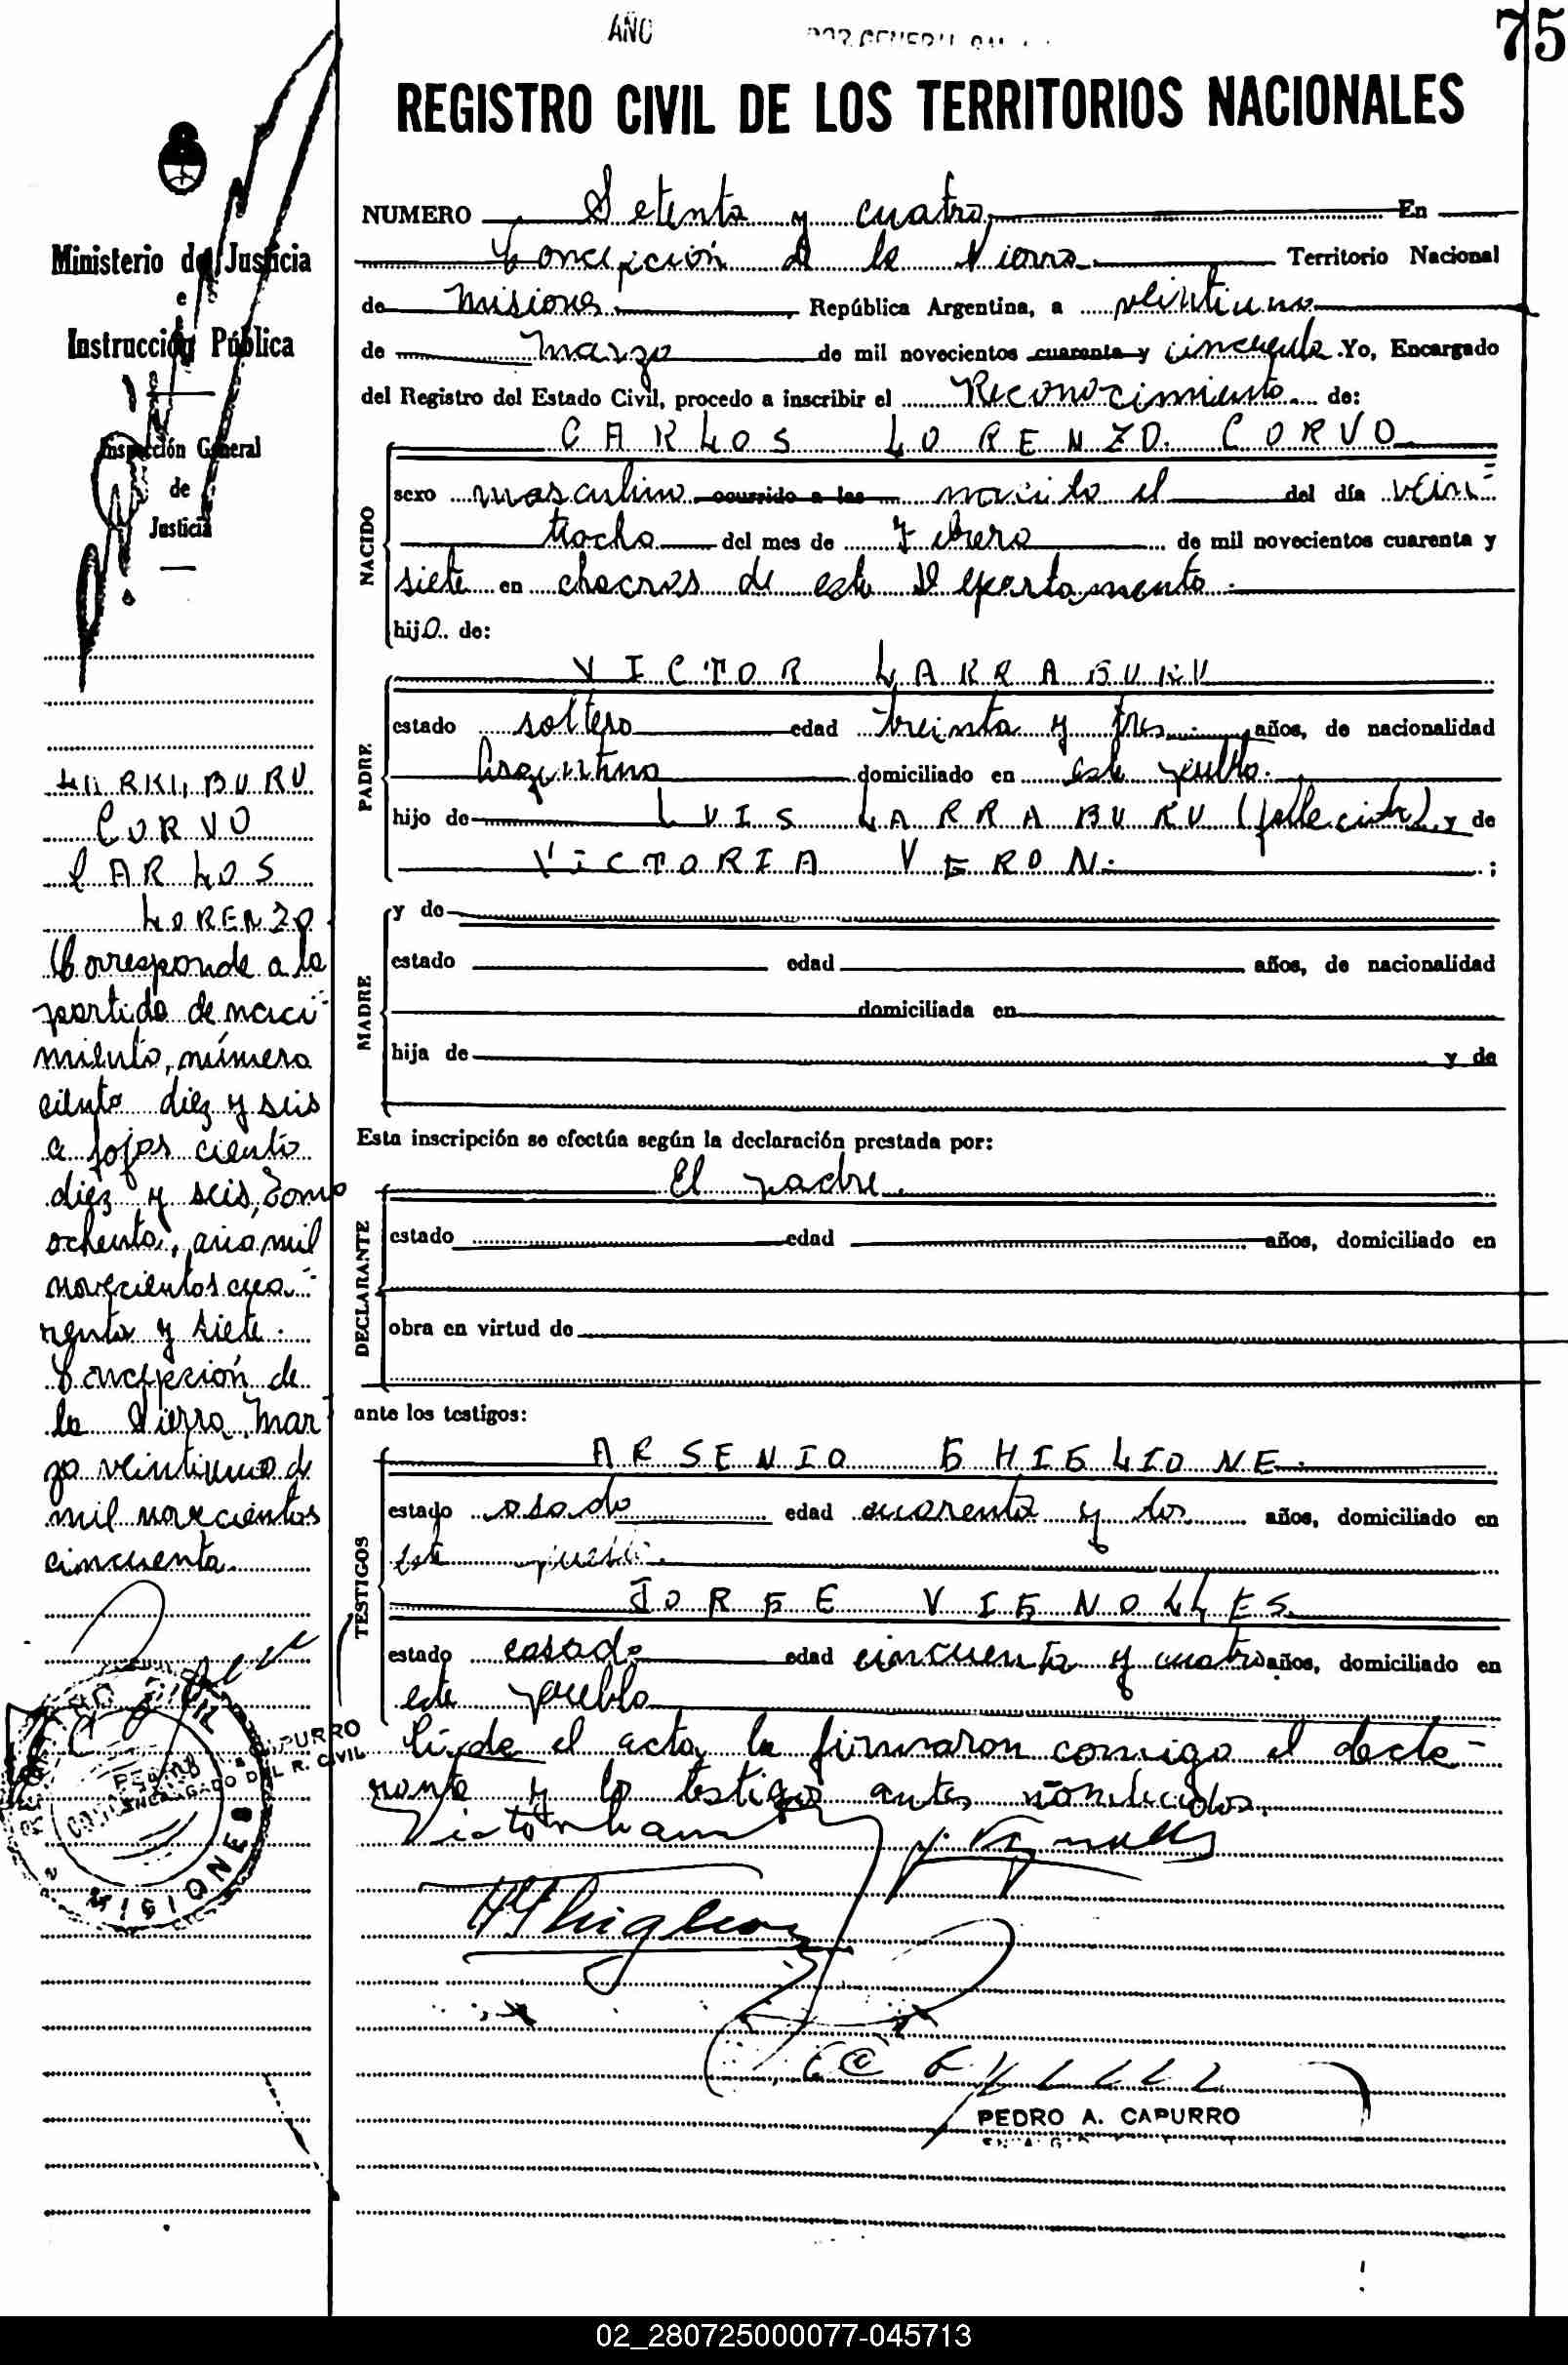 AÑO
75
REGISTRO CIVIL DE LOS TERRITORIOS NACIONALES
Ministerio de Justicia
e
Instrucción Pública
Inspección General
de
Justicia
LARRABURU
CORVO
CARLOS
LORENZO
Corresponde a la
partida de naci-
miento, número
ciento diez y seis
a fojas ciento
diez y seis, Tomo
ochenta, año mil
novecientos cua-
renta y siete.
Concepción de
la Sierra, Mar
zo veintiuno de
mil novecientos
cincuenta.
CAPURRO
ENCARGADO DEL R. CIVIL
MISIONES
NUMERO Setenta y cuatro, En
Concepción de la Sierra. Territorio Nacional
de Misiones, República Argentina, a veintiuno
de Marzo de mil novecientos cuarenta y cincuenta. Yo, Encargado
del Registro del Estado Civil, procedo a inscribir el Reconocimiento de:
CARLOS LORENZO CORVO
NACIDO
sexo masculino ocurrido a las nacido el del día vein-
tiocho del mes de Febrero de mil novecientos cuarenta y
siete en chacras de este Departamento.
hijo de:
VICTOR LARRABURU
PADRE
estado soltero edad treinta y tres años, de nacionalidad
Argentina domiciliado en este pueblo.
hijo de LUIS LARRABURU (fallecido) y de
VICTORIA VERON ;
MADRE
y de
estado edad años, de nacionalidad
domiciliada en
hija de y de
Esta inscripción se efectúa según la declaración prestada por:
El padre.
DECLARANTE
estado edad años, domiciliado en
obra en virtud de
ante los testigos:
TESTIGOS
ARSENIO GHIGLIONE.
estado casado edad cuarenta y dos años, domiciliado en
este pueblo.
JORGE VIGNOLLES
estado casado edad cincuenta y cuatro años, domiciliado en
este pueblo
Leída el acta, la firmaron conmigo el decla-
rante y los testigos antes nombrados.
PEDRO A. CAPURRO
02_280725000077-045713